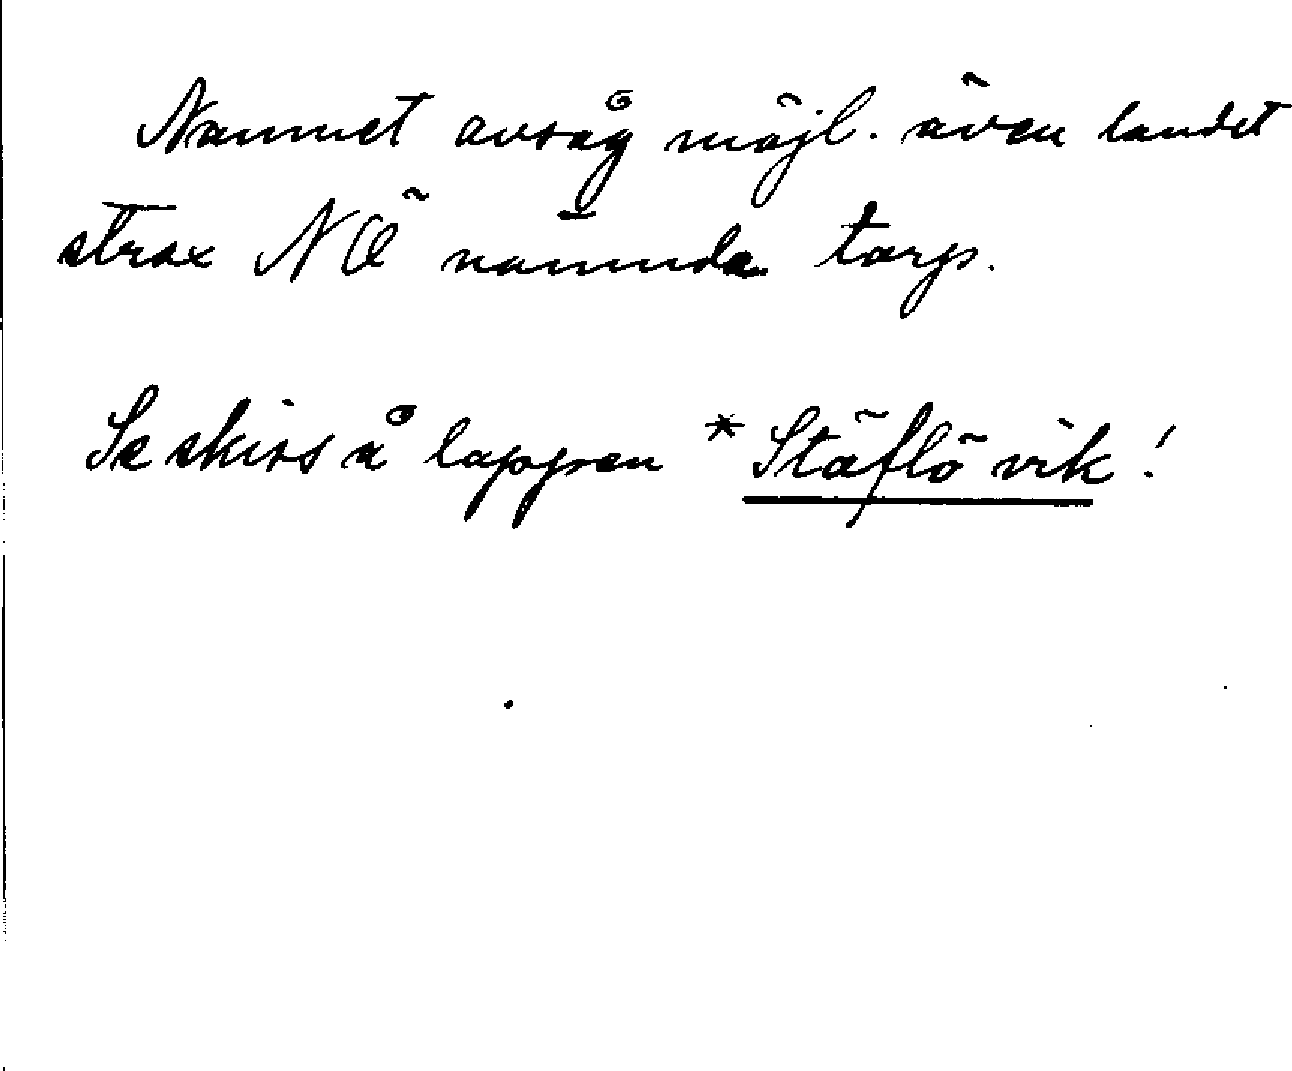 Namnet avsåg möjl. även landet
strax NÖ nämnda torp.
Se skiss å lappen *Stäflö vik!